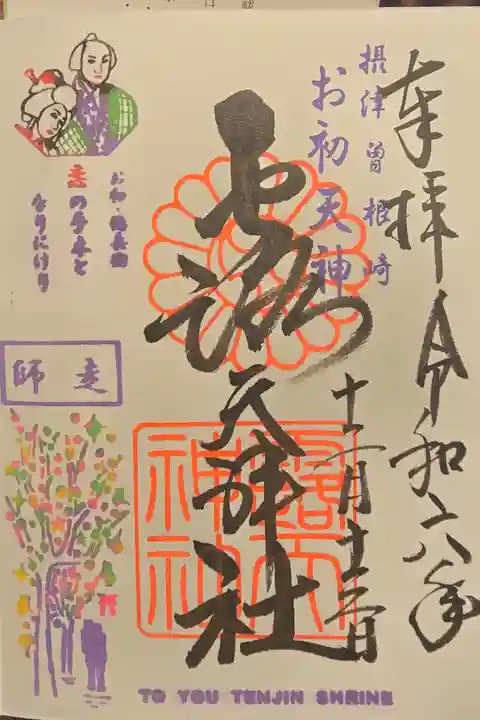 奉拝
令和六年
摂津曽根崎
お初天神
十二月十三日
露天神社
露天神社
お初・徳兵衛
恋の手本と
なりにけり
師走
TO YOU TENJIN SHRINE